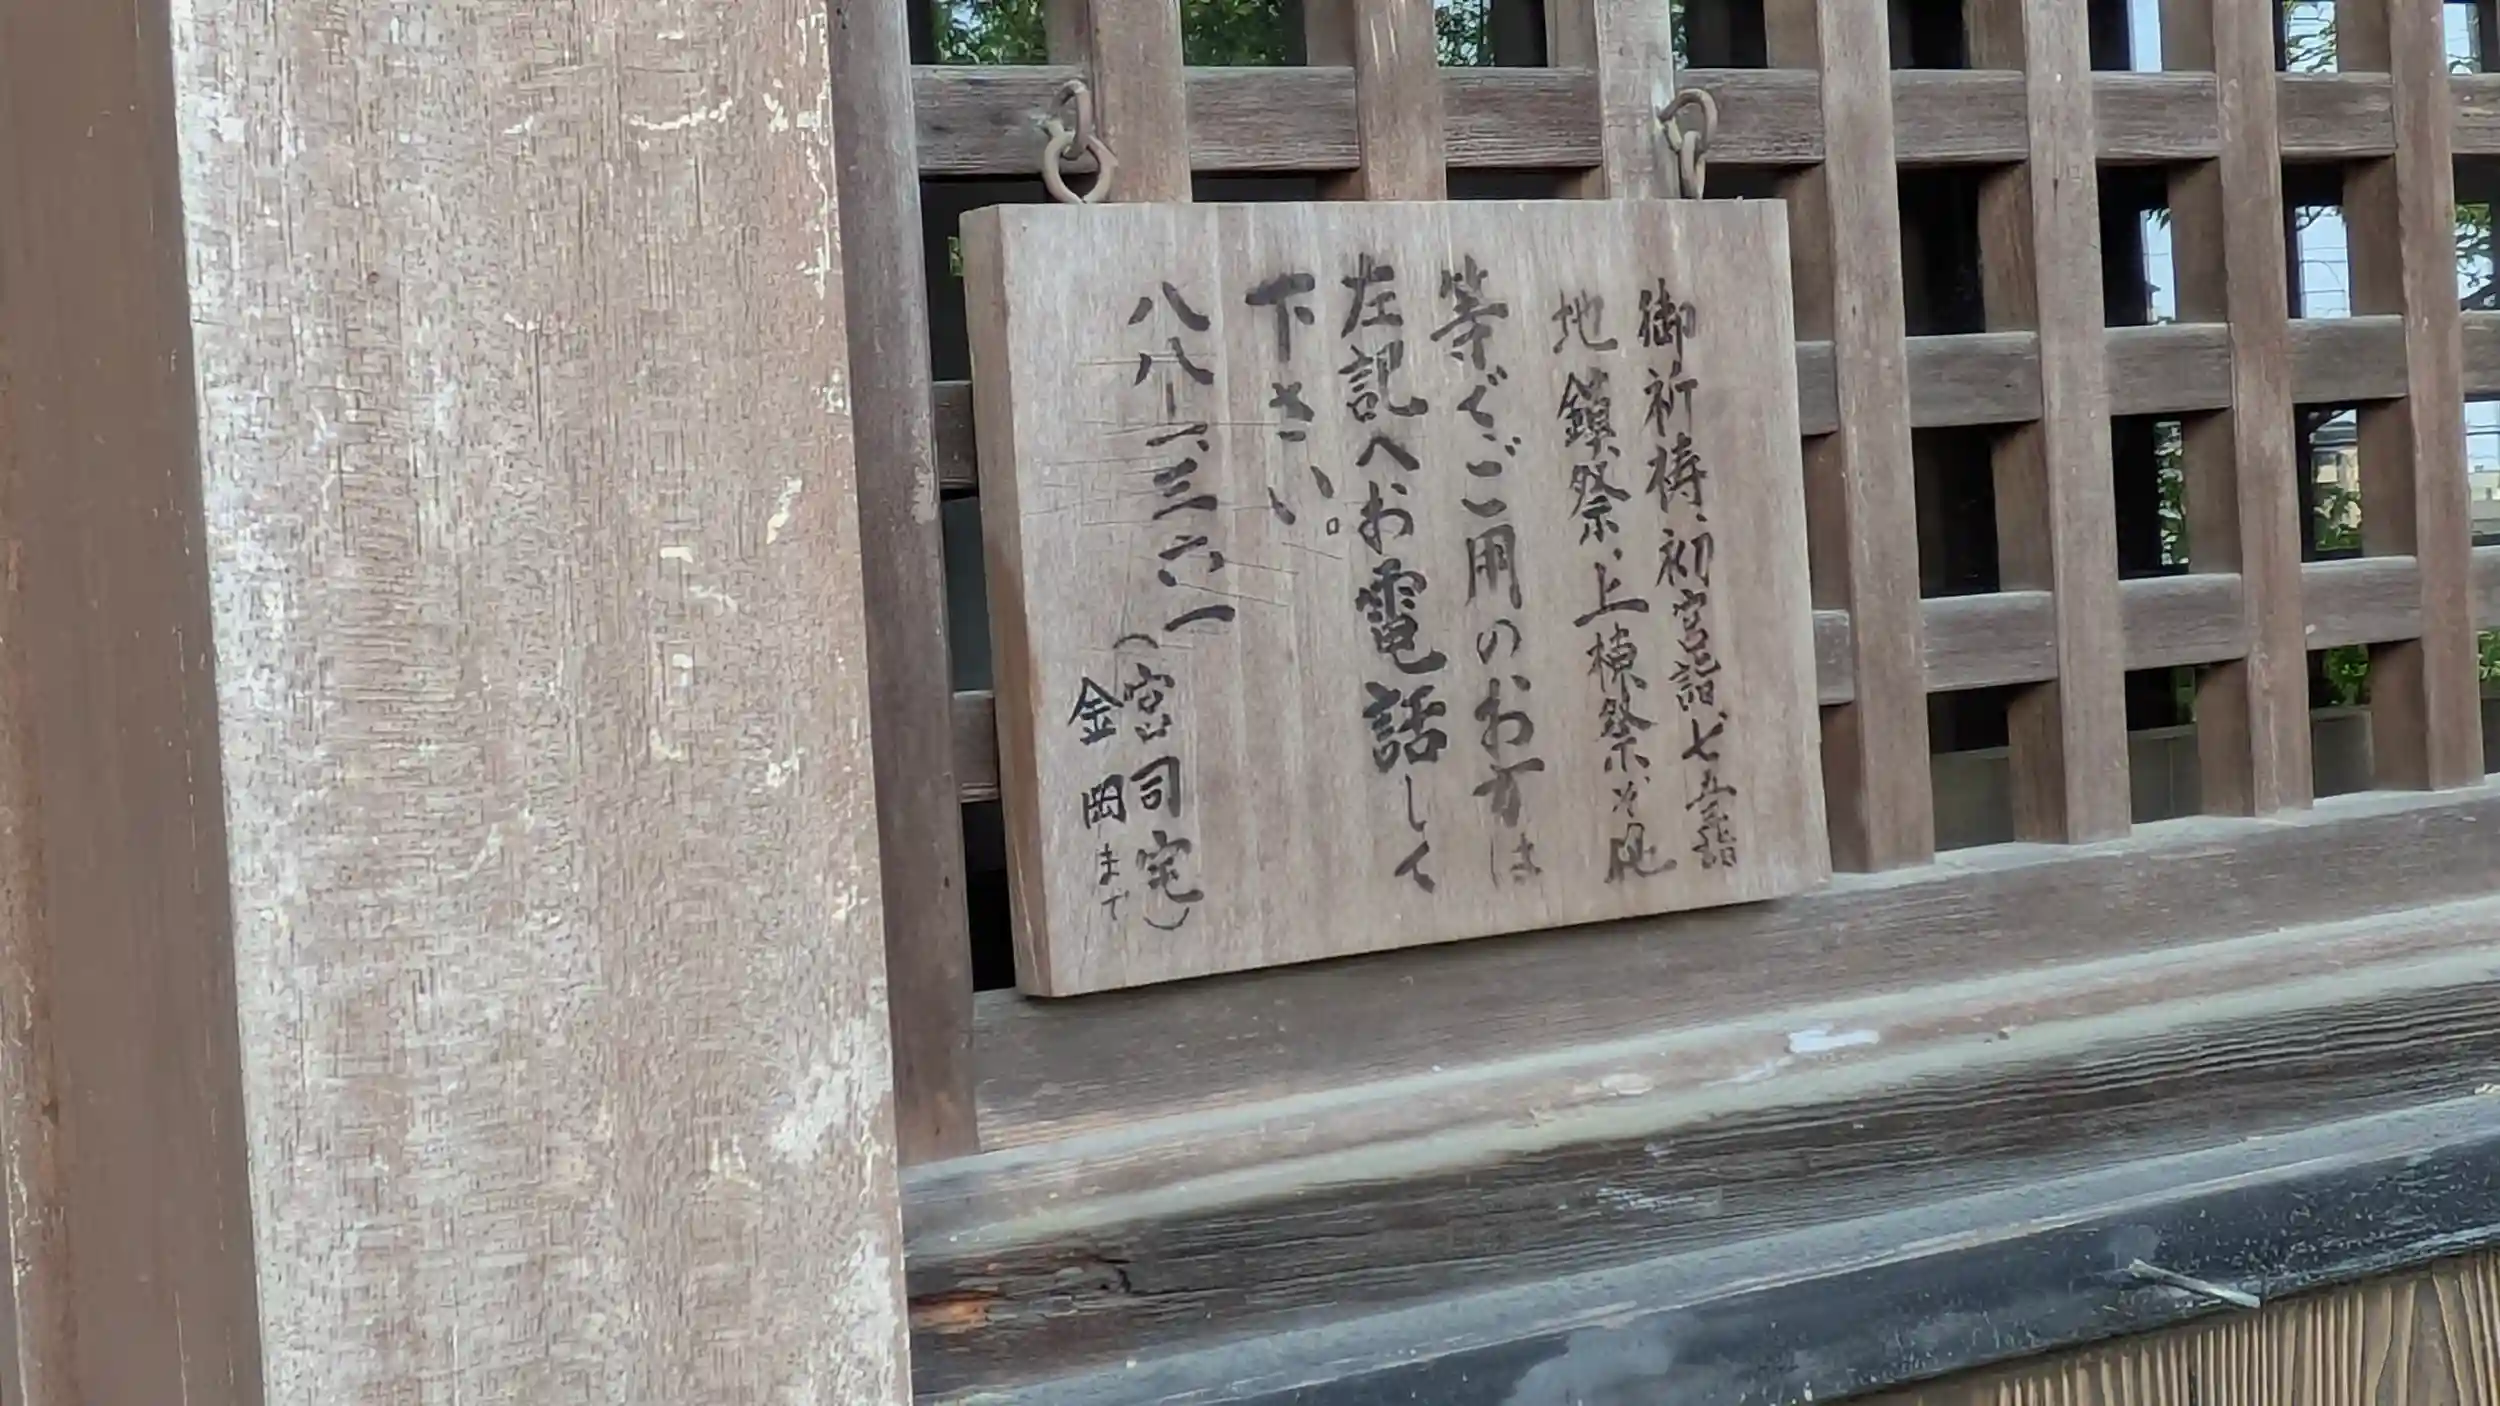 御祈祷、初宮詣、七五三詣
地鎮祭、上棟祭、その他
等でご用のお方は
左記へお電話して
下さい。
八八-三六一
(宮司宅)
金岡まで